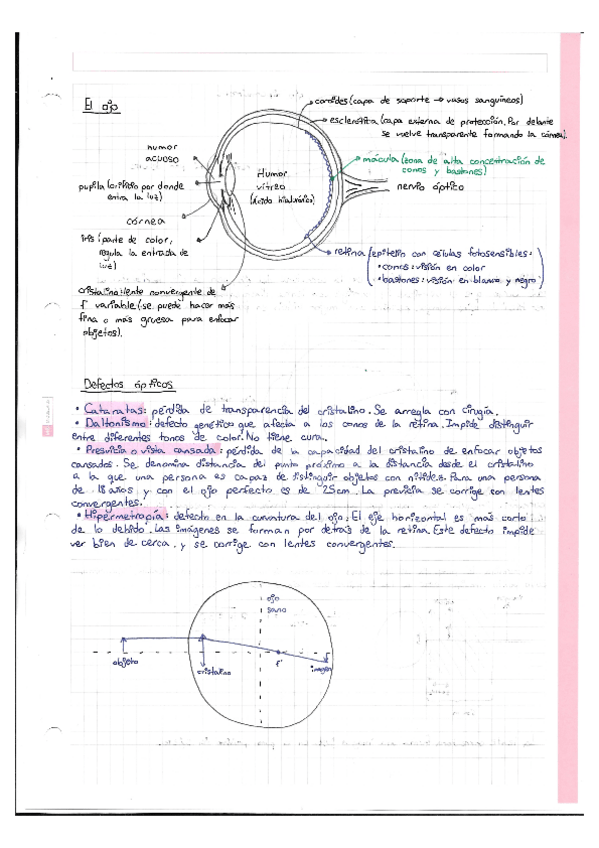 El ojo
coroides (capa de soporte → vasos sanguíneos)
esclerótica (capa externa de protección. Por delante
se vuelve transparente formando la córnea).
mácula (zona de alta concentración de
conos y bastones)
nervio óptico
humor
acuoso
Humor
vítreo
(ácido hialurónico)
pupila (orificio por donde
entra la luz)
córnea
iris (parte de color,
regula la entrada de
luz)
retina (epitelio con células fotosensibles:
• conos: visión en color
• bastones: visión en blanco y negro)
cristalino: lente convergente de
f' variable (se puede hacer más
fina o más gruesa para enfocar
objetos).
Defectos ópticos
• Cataratas: pérdida de transparencia del cristalino. Se arregla con cirugía.
• Daltonismo: defecto genético que afecta a los conos de la retina. Impide distinguir
entre diferentes tonos de color. No tiene cura.
• Presvicia o vista cansada: pérdida de la capacidad del cristalino de enfocar objetos
cansados. Se denomina distancia del punto próximo a la distancia desde el cristalino
a la que una persona es capaz de distinguir objetos con nitidez. Para una persona
de 18 años y con el ojo perfecto es de 25cm. La previcia se corrige con lentes
convergentes.
• Hipermetropía: defecto en la curvatura del ojo. El eje horizontal es más corto
de lo debido. Las imágenes se forman por detrás de la retina. Este defecto impide
ver bien de cerca, y se corrige con lentes convergentes.
ojo
sano
objeto
cristalino
f'
imagen